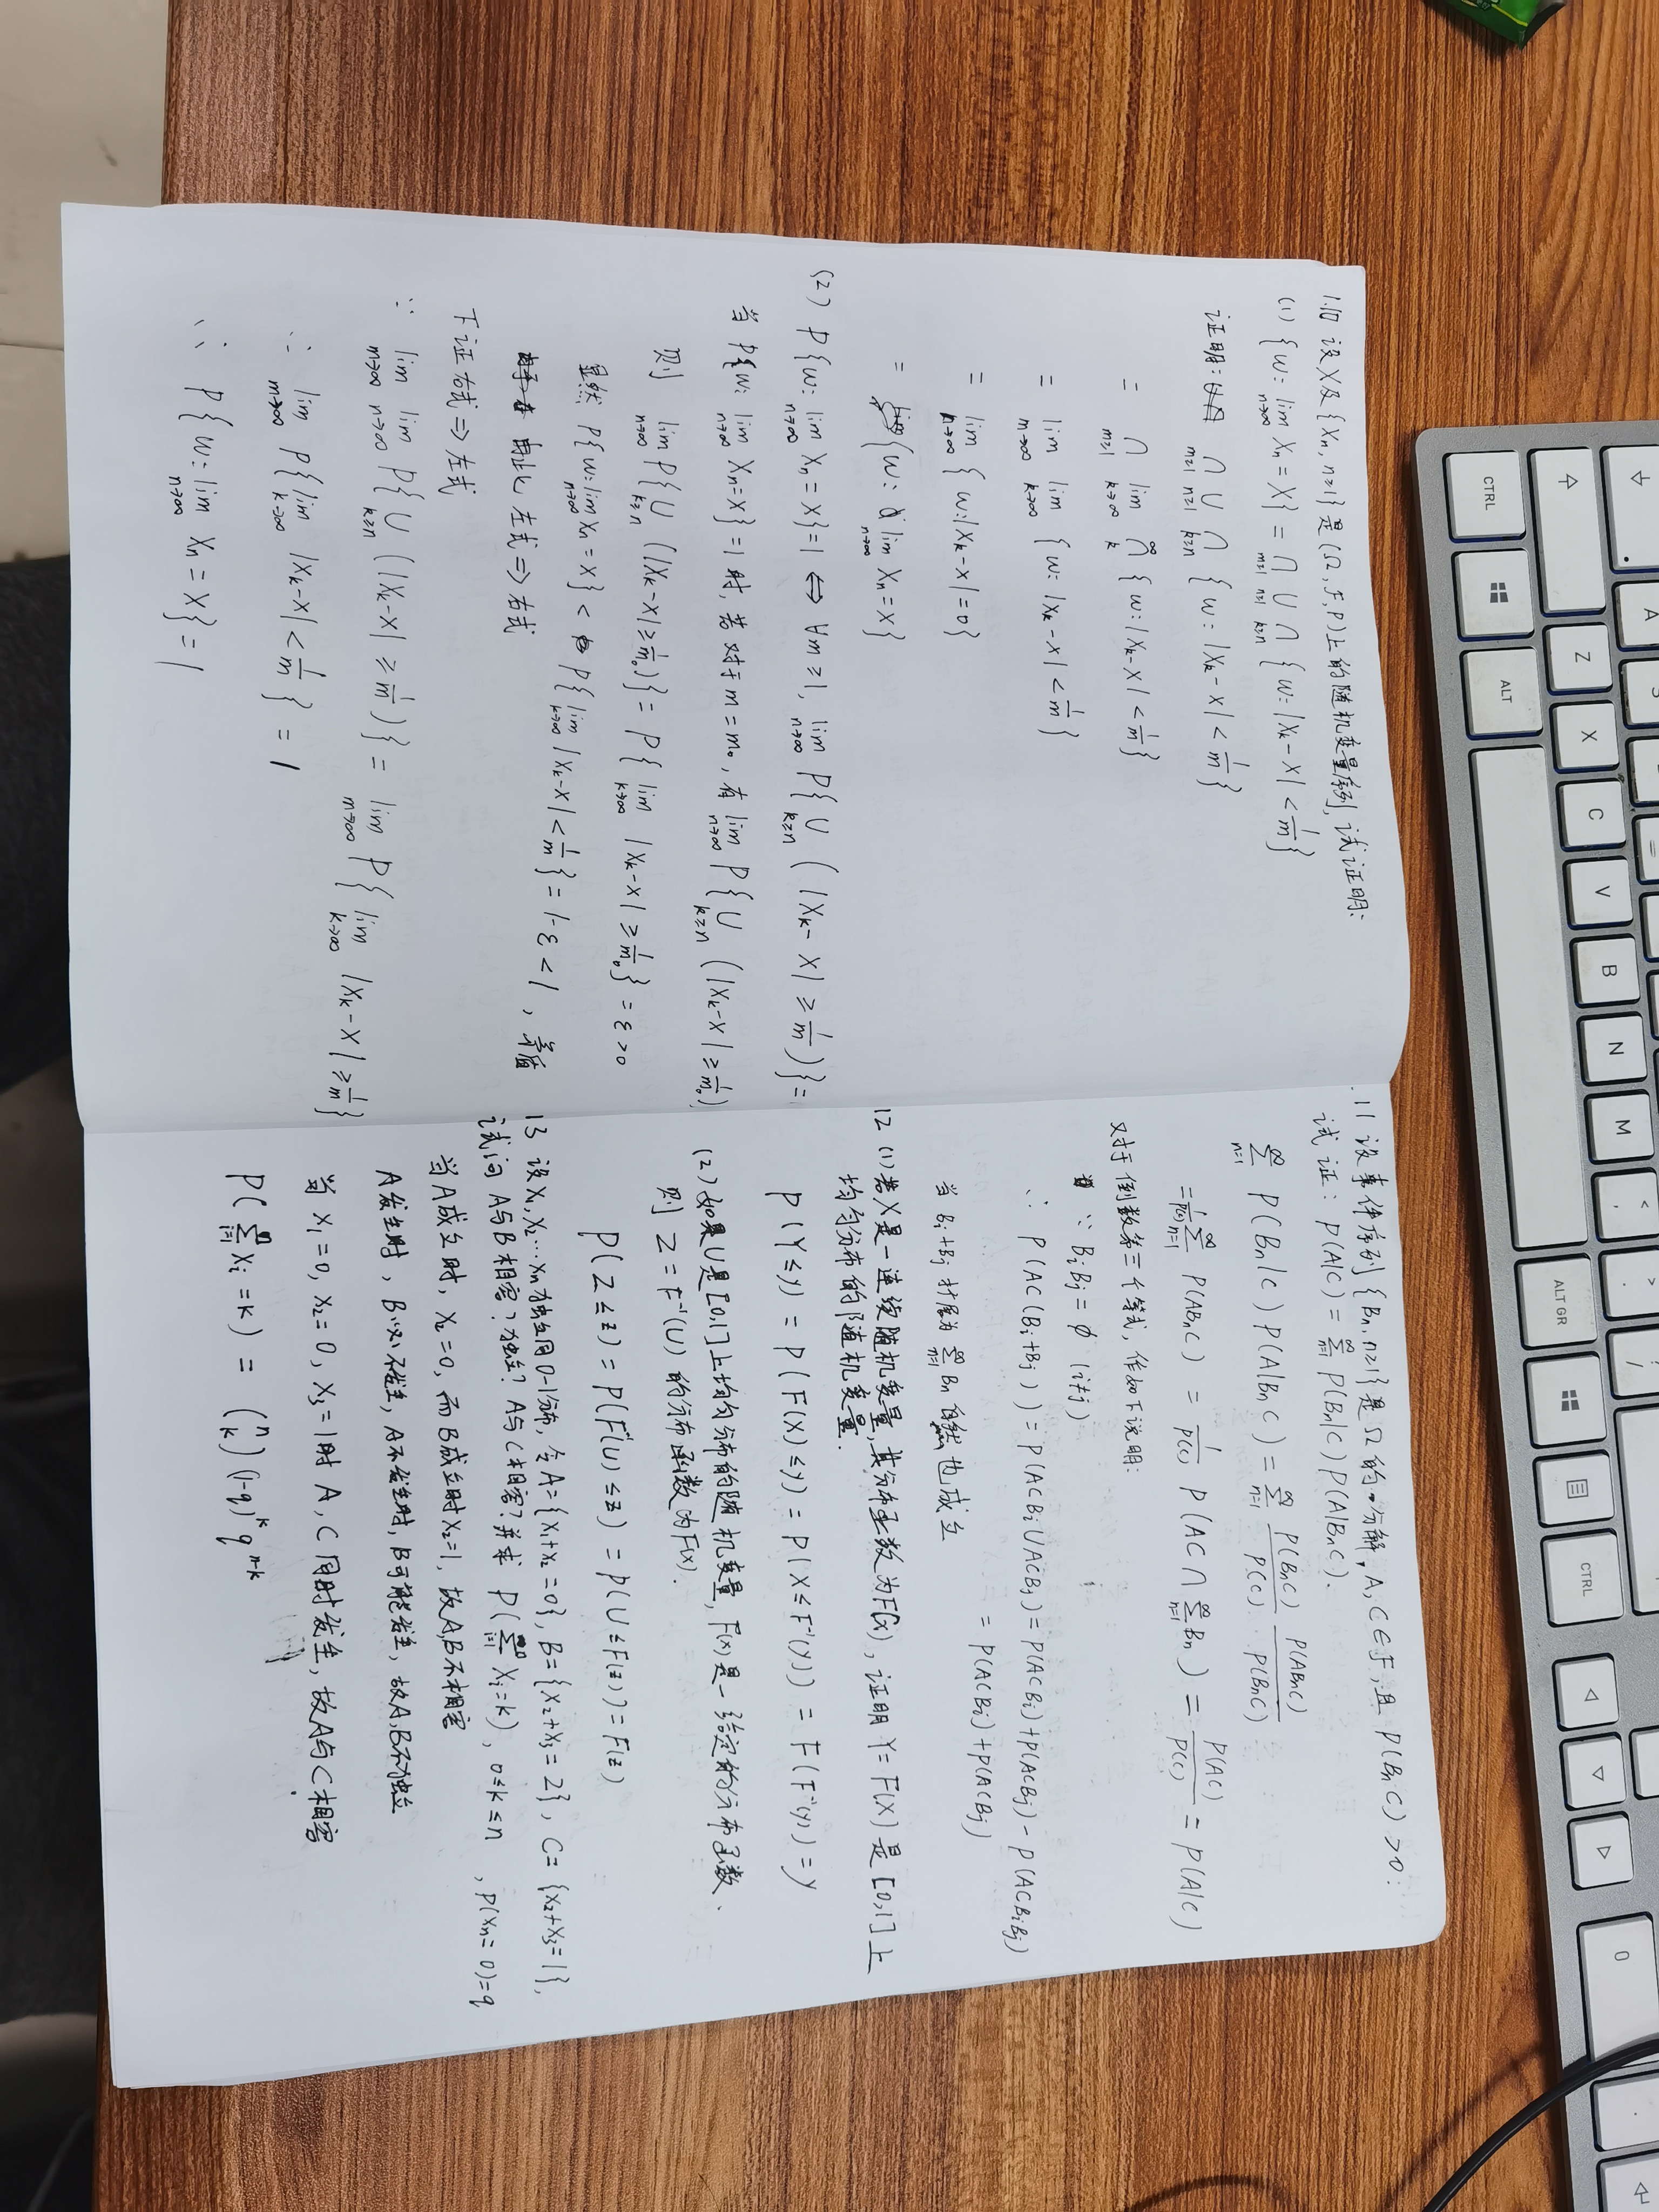 1.10 设X及{Xn, n≥1}是(Ω,F,P)上的随机变量序列,试证明:
(1) {w: lim n→∞ Xn = X} = ∩ m≥1 ∪ n≥1 ∩ k≥n {w: |Xk - X| < 1/m}
证明: ∩ m≥1 ∪ n≥1 ∩ k≥n {w: |Xk - X| < 1/m}
= ∩ m≥1 lim k→∞ ∩ k ∞ {w: |Xk - X| < 1/m}
= lim m→∞ lim k→∞ {w: |Xk - X| < 1/m}
= lim n→∞ {w: |Xk - X| = 0}
= {w: lim n→∞ Xn = X}
(2) P{w: lim n→∞ Xn = X} = 1 ⇔ ∀m≥1, lim n→∞ P{∪ k≥n (|Xk - X| ≥ 1/m)} =
当 P{w: lim n→∞ Xn = X} = 1时, 若对于m = m₀, 有 lim n→∞ P{∪ k≥n (|Xk - X| ≥ 1/m₀)
则 lim n→∞ P{∪ k≥n (|Xk - X| ≥ 1/m₀)} = P{lim k→∞ |Xk - X| ≥ 1/m₀} = ε > 0
显然 P{w: lim n→∞ Xn = X} < P{lim k→∞ |Xk - X| < 1/m} = 1-ε < 1, 矛盾
左式⇒右式
下证右式⇒左式
∵ lim m→∞ lim n→∞ P{∪ k≥n (|Xk - X| ≥ 1/m)} = lim m→∞ P{lim k→∞ |Xk - X| ≥ 1/m}
∴ lim m→∞ P{lim k→∞ |Xk - X| < 1/m} = 1
∴ P{w: lim n→∞ Xn = X} = 1
.11 设事件序列{Bn, n≥1}是Ω的分解, A, C∈F, 且 P(BnC) > 0:
试证: P(A|C) = ∞ Σ n=1 P(Bn|C) P(A|BnC).
∞ Σ n=1 P(Bn|C) P(A|BnC) = ∞ Σ n=1 P(BnC)/P(C) · P(ABnC)/P(BnC)
= 1/P(C) ∞ Σ n=1 P(ABnC) = 1/P(C) P(AC ∩ ∞ Σ n=1 Bn) = P(AC)/P(C) = P(A|C)
对于倒数第三个等式, 作如下说明:
∵ BiBj = ∅ (i≠j)
∴ P(AC(Bi+Bj)) = P(ACBi∪ACBj) = P(ACBi)+P(ACBj) - P(ACBiBj)
= P(ACBi)+P(ACBj)
当 Bi+Bj 扩展为 ∞ Σ n=1 Bn 自然也成立
12 (1) 若X是一连续随机变量, 其分布函数为F(x), 证明Y=F(X)是[0,1]上
均匀分布的随机变量.
P(Y≤y) = P(F(X)≤y) = P(X≤F⁻¹(y)) = F(F⁻¹(y)) = y
(2) 如果U是[0,1]上均匀分布的随机变量, F(x)是一给定的分布函数、
则 Z = F⁻¹(U) 的分布函数为F(x).
P(Z≤z) = P(F⁻¹(U)≤z) = P(U≤F(z)) = F(z)
13 设X₁,X₂…Xn独立同0-1分布, 令A={X₁+X₂=0}, B={X₂+X₃=2}, C={X₂+X₃=1},
试问 A与B相容?独立? A与C相容? 并求 P(Σ i=1 Xi=k), 0≤k≤n , P(Xn=0)=q
当A成立时, X₂=0, 而B成立时X₂=1, 故A,B不相容
A发生时, B必不发生, A不发生时, B可能发生, 故A,B不独立
当 X₁=0, X₂=0, X₃=1时 A, C同时发生, 故A与C相容
P(n Σ i=1 Xi=k) = (n k)(1-q)^k q^n-k
CTRL
ALT
A
S
Z
X
C
V
B
N
M
<
>
/
ALT GR
CTRL
0
.